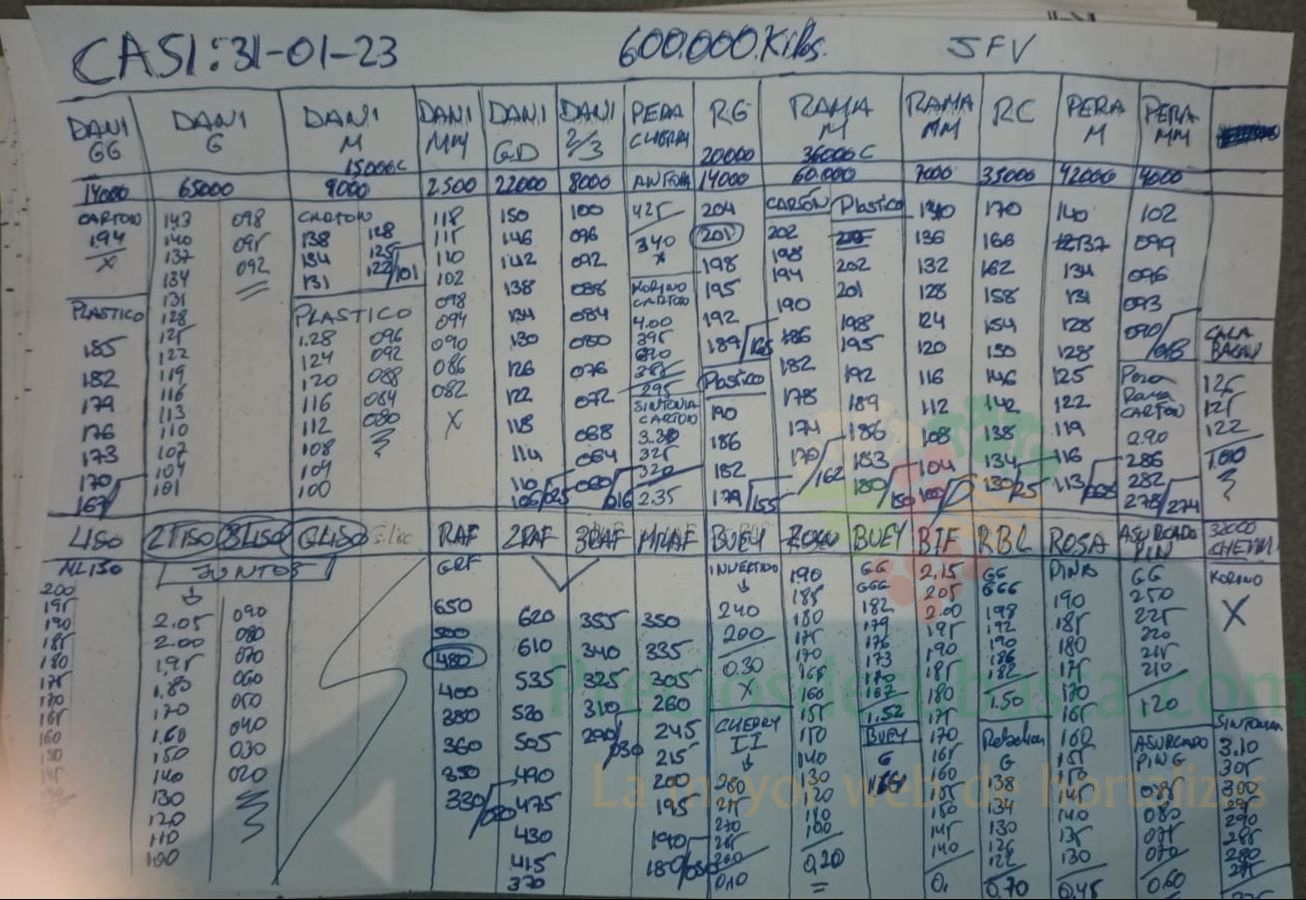 CASI: 31-01-23 600.000 Kilos. JFV
DANI GG
14000
CARTON
194
X
PLASTICO
185
182
179
176
173
170
167
DANI G
65000
143 098
140 095
137 092
134
131
128
125
122
119
116
113
110
107
104
101
DANI M
15000C
9000
CARTON
138 128
134 125
131 122/101
PLASTICO
1.28 096
124 092
120 088
116 084
112 080
108
104
100
DANI MM
2.500
118
115
110
102
098
094
090
086
082
X
DANI GD
22000
150
146
142
138
134
130
126
122
118
114
110
106/025
DANI 2/3
8000
100
096
092
088
084
080
076
072
068
064
060/016
PERA CHERRY
425
340
X
KORINO
CARTON
4.00
395
390
385
295
SINTONIA
CARTON
3.30
325
320
2.35
RG
20000
14000
204
201
198
195
192
189/165
Plastico
190
186
182
179/155
RAMA M
36000C
60.000
CARTON
202
198
194
190
186
182
178
174
170/162
Plastico
202
201
198
195
192
189
186
183
180/150
RAMA MM
7000
140
136
132
128
124
120
116
112
108
104
RC
35000
170
166
162
158
154
150
146
142
138
134
130/25
PERA M
42000
140
137
134
131
128
128
125
122
119
116
113/068
PERA MM
4000
102
099
096
093
090/068
Pera
Rama
CARTON
2.90
286
282
278/274
CALA
BACIN
125
125
122
1.00
LISO
NL150
200
195
190
185
180
175
170
165
160
150
145
2TISO 3LISO GLISO
JUNTOS
2.05 090
2.00 080
1.95 070
1.80 060
170 050
1.60 040
150 030
140 020
130
120
110
100
RAF
GRF
650
500
480
400
380
360
350
330/080
2RAF
620
610
535
520
505
490
475
430
415
370
3RAF
355
340
325
310
290/030
MRAF
350
335
305
260
245
215
200
195
190
180/030
BUEY
INVERTIDO
240
200
0.30
X
CHERRY
II
280
275
270
265
260
0.10
190
185
180
175
170
165
160
155
150
140
130
120
110
100
0,20
BUEY
GG
GGG
182
179
176
173
170
167
1.52
BUEY
G
BIF
2.15
205
2.00
195
190
185
180
175
170
165
160
155
150
145
140
0,
RBL
GG
GGG
198
192
190
186
182
1.50
Rebelion
G
138
134
130
126
122
0,70
ROSA
PINK
190
185
180
175
170
165
160
155
150
145
140
135
130
0,45
ASURCADO
PIN
GG
250
225
220
215
210
120
ASURCADO
PING
085
080
075
070
0.60
32000
CHERRY
KORINO
X
SINTONIA
3.10
305
300
295
290
285
280
275
Preciosdesubasta.com
La mayor web de hortalizas